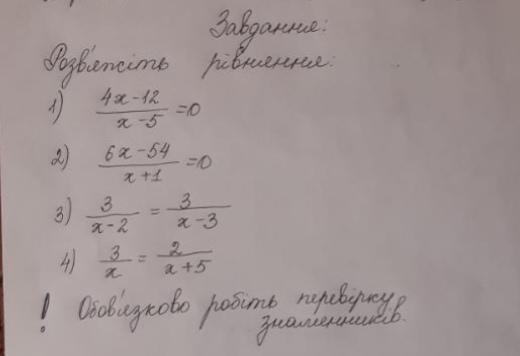 Завдання:
Розв'яжіть рівняння:
1) (4x-12)/(x-5) = 0
2) (6x-54)/(x+1) = 0
3) 3/(x-2) = 3/(x-3)
4) 3/x = 2/(x+5)
! Обов'язково робіть перевірку
знаменників.